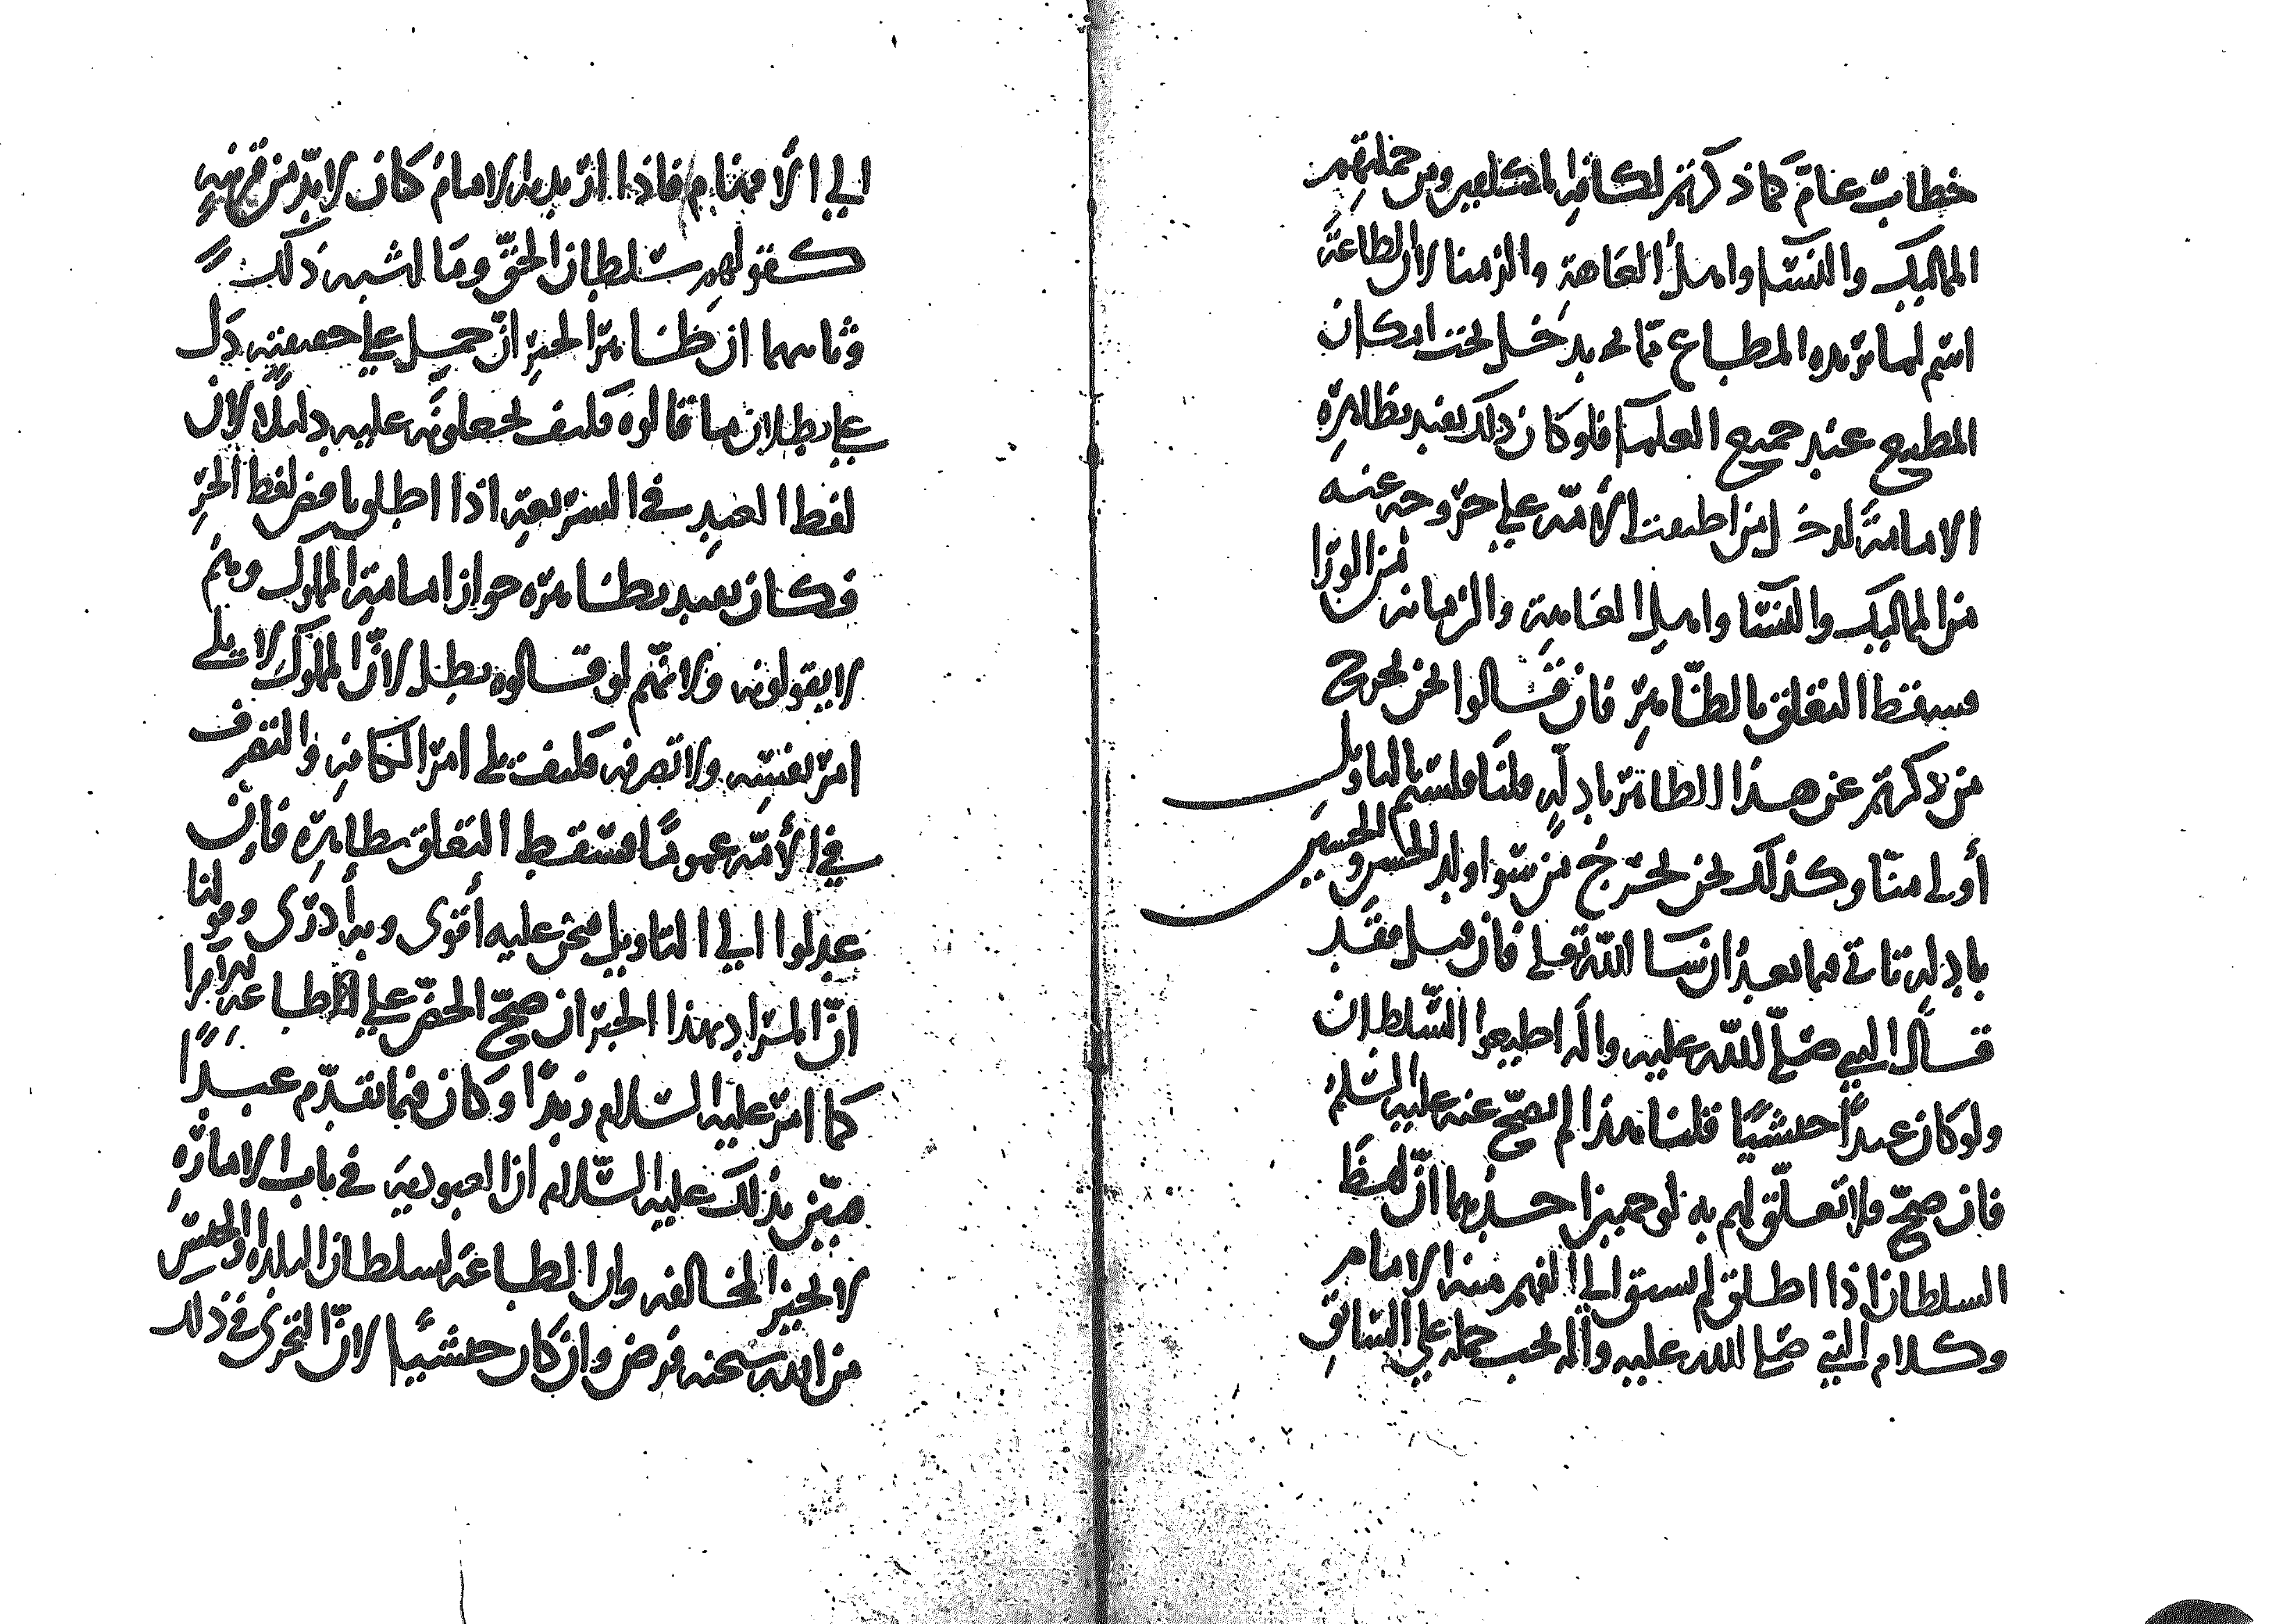 خطابٌ عامٌّ كما ذكرتم لكافة المكلفين ومن جملتهم
المماليك والنسآ واهل العاهة والزمنا لان الطاعة
اسم لما يريده المطاع مما يدخل تحت امكان
المطيع عند جميع العلمآ فلو كان ذلك يفيد بظاهره
الامامة لدخل من اطبقت الأمّة على خروجه عنه
من المماليك والنسآ واهل العاهة والزمانه من الورا
فسقط التعلق بالظاهر فان قالوا نحن نخرج
من ذكرتم عن هذا الظاهر بادلّةٍ قلنا فلستم بالتاويل
أولى منّا وكذلك نحن نخرج من سوا ولد الحسن والحسين
بادلةٍ تاتي فيما بعد ان شا الله تعلى فان قيل فقد
قال النبي صلّى الله عليه وآله اطيعوا السّلطان
ولو كان عبداً حبشيّا قلنا هذا لم يصحّ عنه عليه السّلم
فان صحّ فلا تعلّق لهم به لوجهين احدهما انّ لفظ
السلطان اذا اطلق لم يسبق الى الفهم منه الامام
وكلام النبي صلى الله عليه وآله يجب حمله على السابق
الى الأفهام فاذا اريد به الامام كان لا بدّ من قرينةٍ
كقولهم سلطان الحقّ وما اشبه ذلك
وثانيهما ان ظاهر الخبر انْ حمل على حقيقته دَل
على بطلان ما قالوه فكيف يجعلونه عليه دليلًا لان
لفظ العبد في الشريعة اذا اطلق افاد لفظ
فكان يفيد بظاهره جواز امامة المملوك وهم
لا يقولونه ولانهّم لو قالوه بطل لانّ المملوك لا يلي
امر نفسه ولا تصرفه فكيف يلي امر الكافة والتصرف
في الأمّة عمومًا فسقط التعلق بظاهره فان
عدلوا الى التاويل فنحن عليه أقوى وبه أدرى وهو لنا
انّ المراد بهذا الخبر ان صحّ الحضّ على الطاعة
كما امر عليه السلام زيدًا وكان فيما تقدّم عبدًا
فبيّن بذلك عليه السّلام ان العبودية في باب الامارة
لا تجيز المخالفه وان الطاعة لسلطان البلدة والجيش
من الله سبحنه فرض وان كان حبشيًا لانّ التحرّي في ذلك